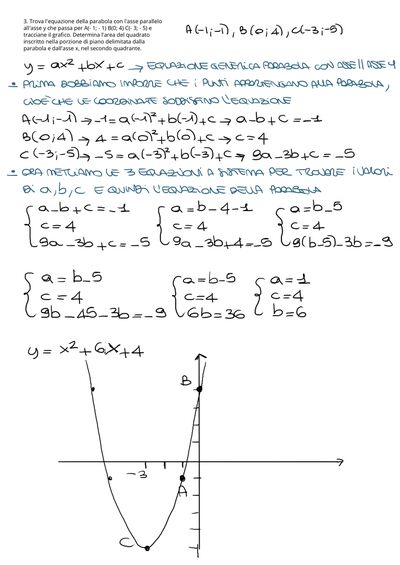 3. Trova l'equazione della parabola con l'asse parallelo
all'asse y che passa per A(- 1; - 1) B(0; 4) C(- 3; - 5) e
tracciane il grafico. Determina l'area del quadrato
inscritto nella porzione di piano delimitata dalla
parabola e dall'asse x, nel secondo quadrante.
A(-1;-1), B(0;4), C(-3;-5)
y = ax²+bx+c → EQUAZIONE GENERICA PARABOLA CON ASSE // ASSE y
• PRIMA DOBBIAMO IMPORRE CHE I PUNTI APPARTENGANO ALLA PARABOLA,
CIOÈ CHE LE COORDINATE SODDISFINO L'EQUAZIONE
A(-1;-1) → -1=a(-1)²+b(-1)+c → a-b+c=-1
B(0;4) → 4=a(0)²+b(0)+c → c=4
C(-3;-5) → -5=a(-3)²+b(-3)+c → 9a-3b+c=-5
• ORA METTIAMO LE 3 EQUAZIONI A SISTEMA PER TROVARE I VALORI
DI a,b,c E QUINDI L'EQUAZIONE DELLA PARABOLA
{a-b+c=-1 {a=b-4-1 {a=b-5
c=4 c=4 c=4
9a-3b+c=-5 9a-3b+4=-5 9(b-5)-3b=-9
{a=b-5 {a=b-5 {a=1
c=4 c=4 c=4
9b-45-3b=-9 6b=36 b=6
y = x²+6x+4
B
-3
A
C